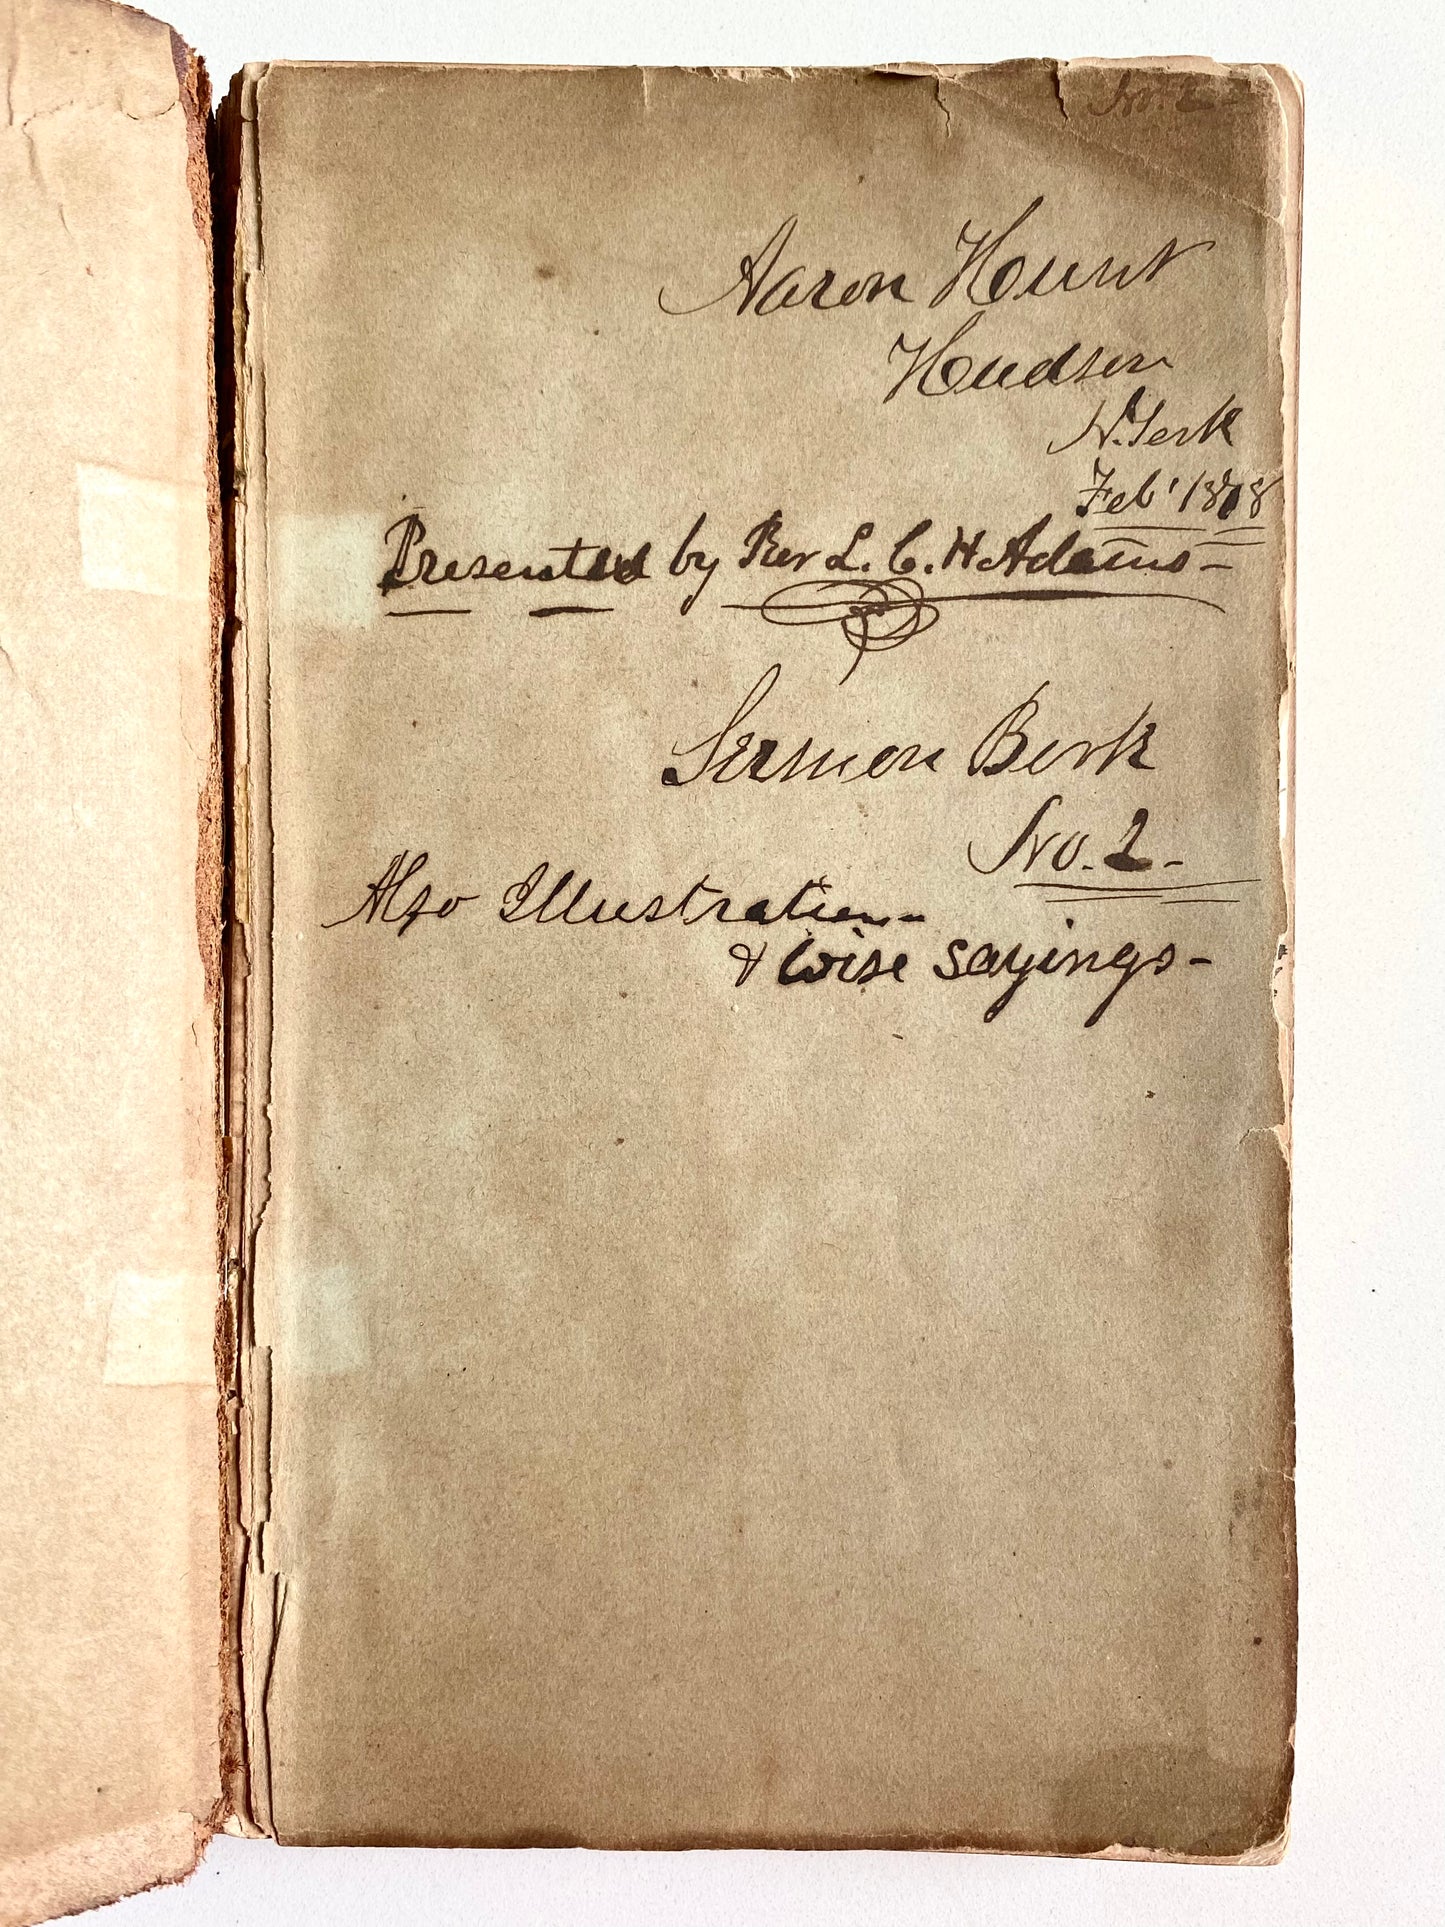 No. 2 -
Aaron Hunt
Hudson
N. York
Feb' 1868
Presented by Rev L. C. H. Adams -
Sermon Book
No. 2 -
Also Illustrations -
& wise sayings -